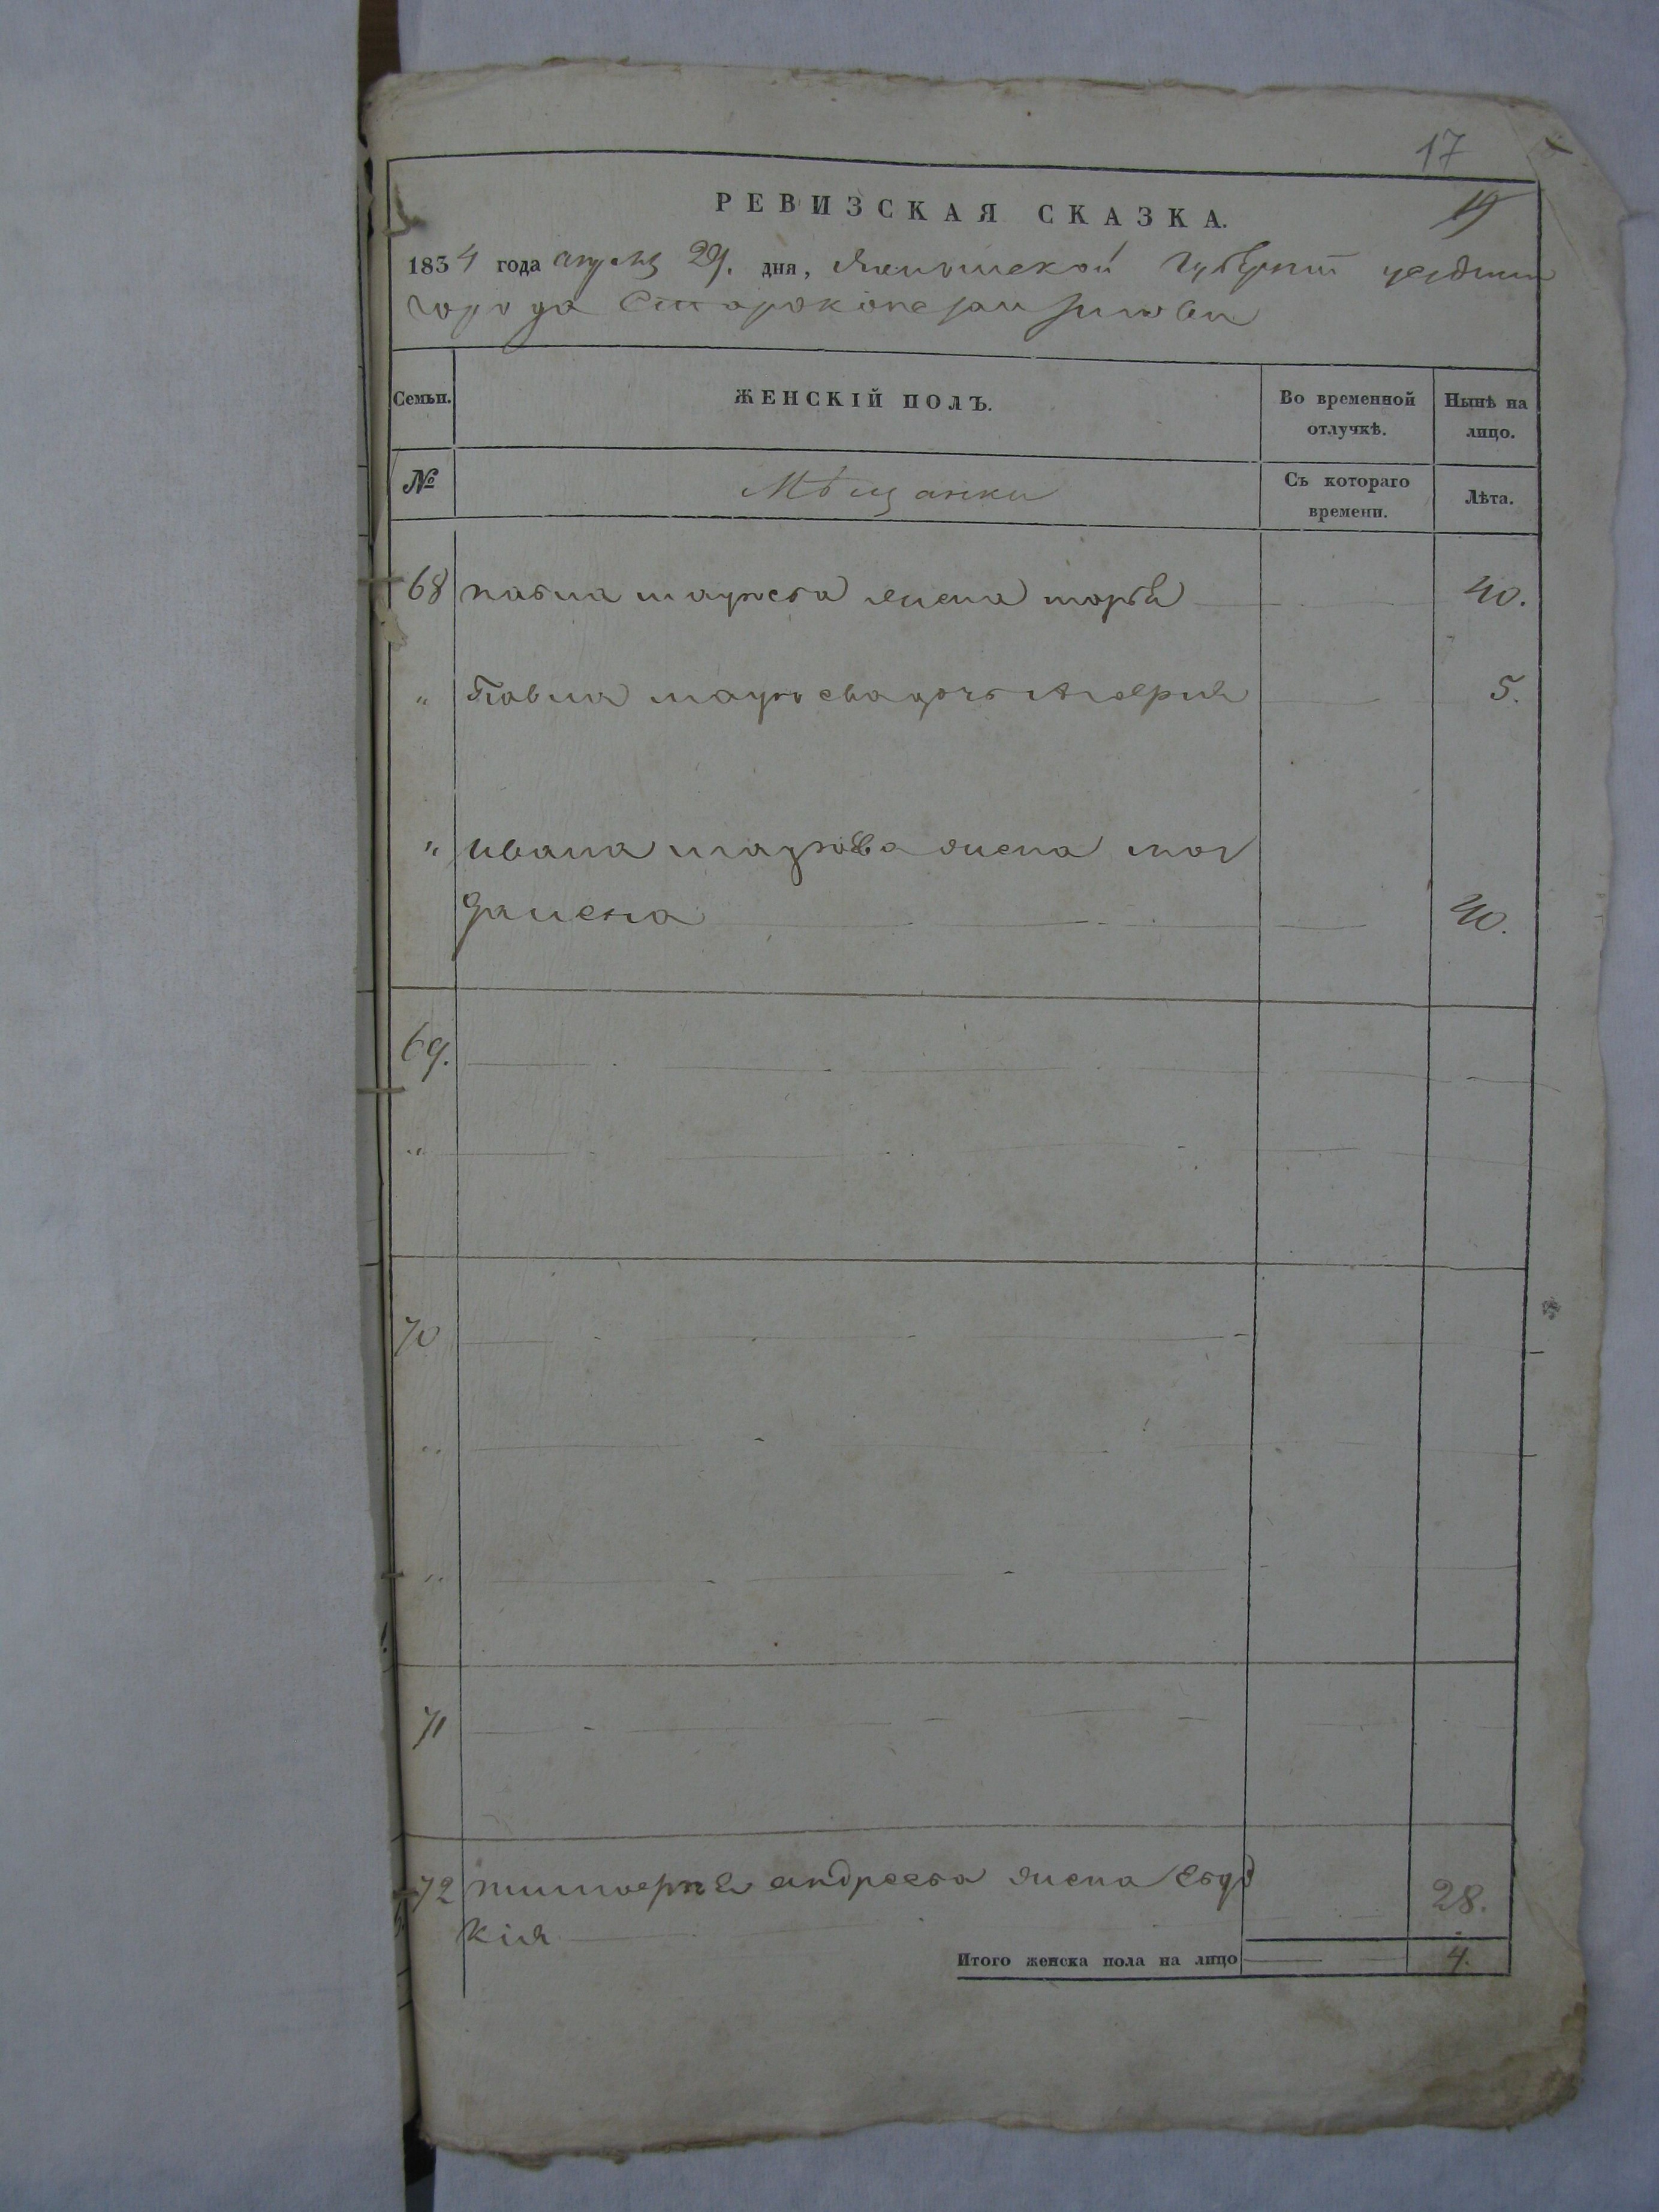 17
19
РЕВИЗСКАЯ СКАЗКА.
1834 года апреля 29. дня, Волынской Губернии
города Староконстантинова
Семьи. ЖЕНСКІЙ ПОЛЪ. Во временной отлучкѣ. Нынѣ на лицо.
№ Мѣщанки Съ котораго времени. Лѣта.
68 павла жена 40.
" Павла дочь 5.
" ивана жена маг
далена 40.
69.
"
70
"
"
71
72 андреева жена Евдо
кія 28.
Итого женска пола на лицо 4.